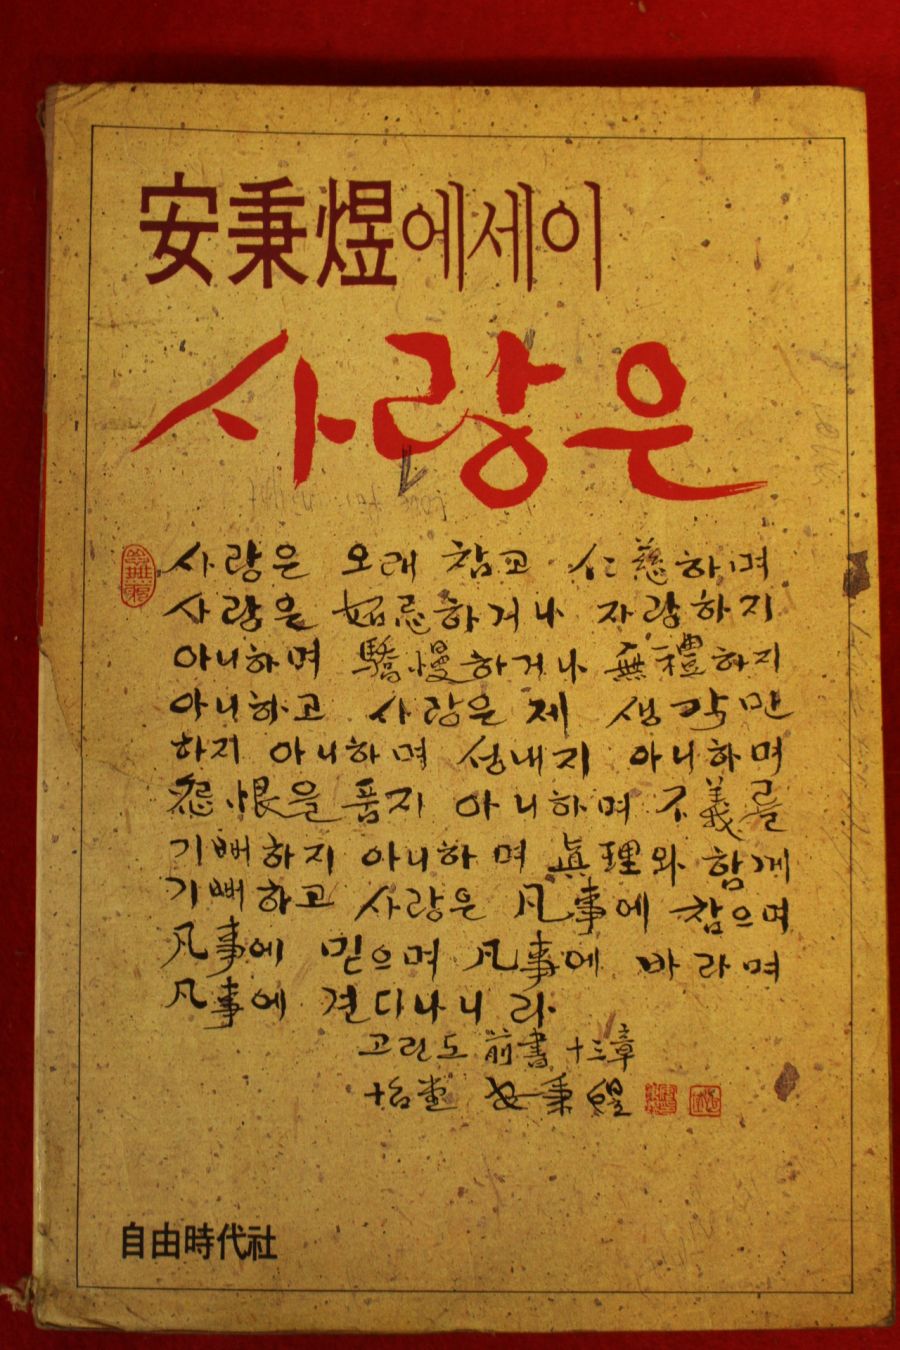 安秉煜에세이
사랑은
사랑은 오래 참고 仁慈하며
사랑은 妬忌하거나 자랑하지
아니하며 驕慢하거나 無禮하지
아니하고 사랑은 제 생각만
하지 아니하며 성내지 아니하며
怨恨을 품지 아니하며 不義를
기뻐하지 아니하며 眞理와 함께
기뻐하고 사랑은 凡事에 참으며
凡事에 믿으며 凡事에 바라며
凡事에 견디나니라
고린도 前書 十三章
安秉煜
自由時代社